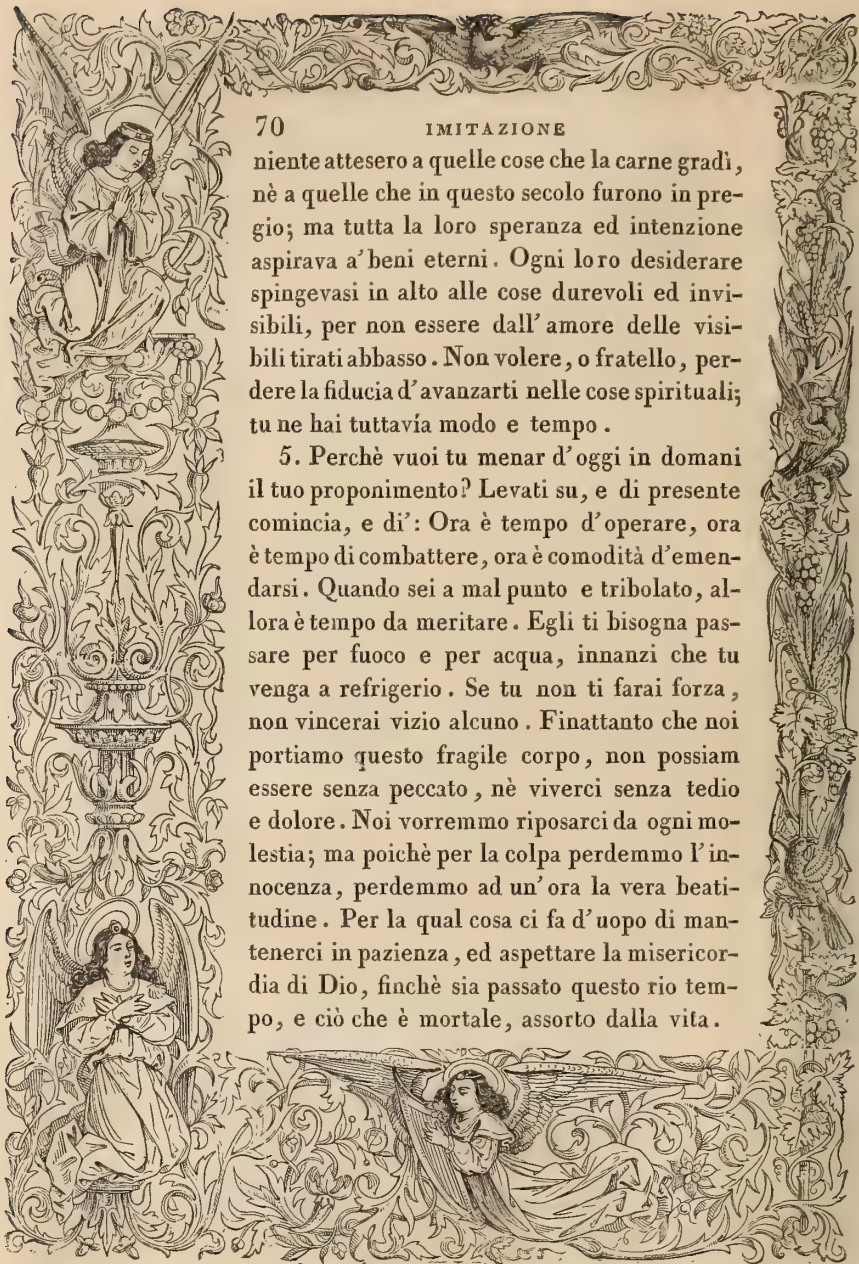 70 IMITAZIONE
niente attesero a quelle cose che la carne gradì,
nè a quelle che in questo secolo furono in pre-
gio; ma tutta la loro speranza ed intenzione
aspirava a' beni eterni. Ogni loro desiderare
spingevasi in alto alle cose durevoli ed invi-
sibili, per non essere dall' amore delle visi-
bili tirati abbasso. Non volere, o fratello, per-
dere la fiducia d'avanzarti nelle cose spirituali;
tu ne hai tuttavía modo e tempo.
5. Perchè vuoi tu menar d'oggi in domani
il tuo proponimento? Levati su, e di presente
comincia, e di': Ora è tempo d'operare, ora
è tempo di combattere, ora è comodità d'emen-
darsi. Quando sei a mal punto e tribolato, al-
lora è tempo da meritare. Egli ti bisogna pas-
sare per fuoco e per acqua, innanzi che tu
venga a refrigerio. Se tu non ti farai forza,
non vincerai vizio alcuno. Finattanto che noi
portiamo questo fragile corpo, non possiam
essere senza peccato, nè viverci senza tedio
e dolore. Noi vorremmo riposarci da ogni mo-
lestia; ma poichè per la colpa perdemmo l'in-
nocenza, perdemmo ad un' ora la vera beati-
tudine. Per la qual cosa ci fa d'uopo di man-
tenerci in pazienza, ed aspettare la misericor-
dia di Dio, finchè sia passato questo rio tem-
po, e ciò che è mortale, assorto dalla vita.